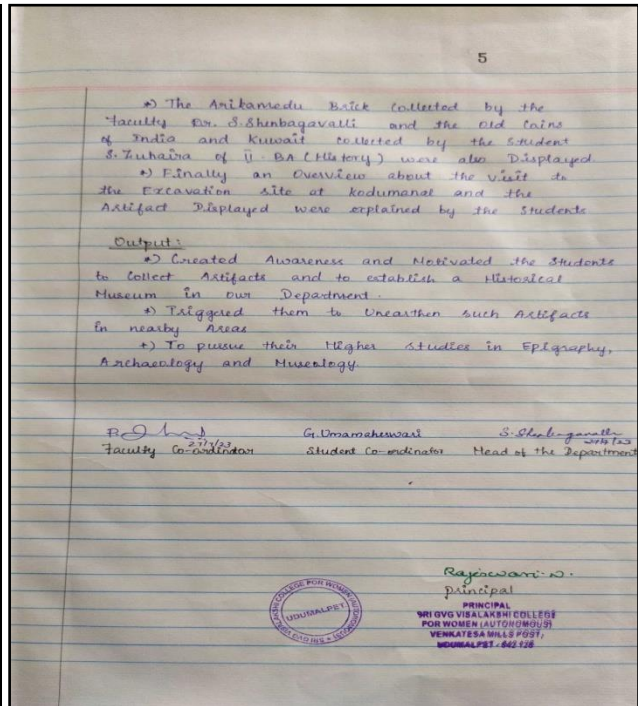 5
*) The Arikamedu Brick collected by the
Faculty Dr. S. Shenbagavalli and the old coins
of India and Kuwait collected by the student
S. Zuhaira of II - BA (History) were also Displayed.
*) Finally an Overview about the visit to
the Excavation site at Kodumanal and the
Artifact Displayed were explained by the Students
Output :
*) Created Awareness and Motivated the Students
to Collect Artifacts and to establish a Historical
Museum in our Department.
*) Triggered them to Unearthen such Artifacts
in nearby Areas
*) To pursue their Higher studies in Epigraphy,
Archaeology and Museology.
G. Umamaheswari S. Shenbagavalli
Faculty Co-ordinator Student Co-ordinator Head of the Department
Rajeswari. N.
principal
PRINCIPAL
SRI GVG VISALAKSHI COLLEGE
FOR WOMEN (AUTONOMOUS)
VENKATESA MILLS POST,
UDUMALPET - 642 128
SRI GVG VISALAKSHI COLLEGE FOR WOMEN (AUTONOMOUS)
UDUMALPET